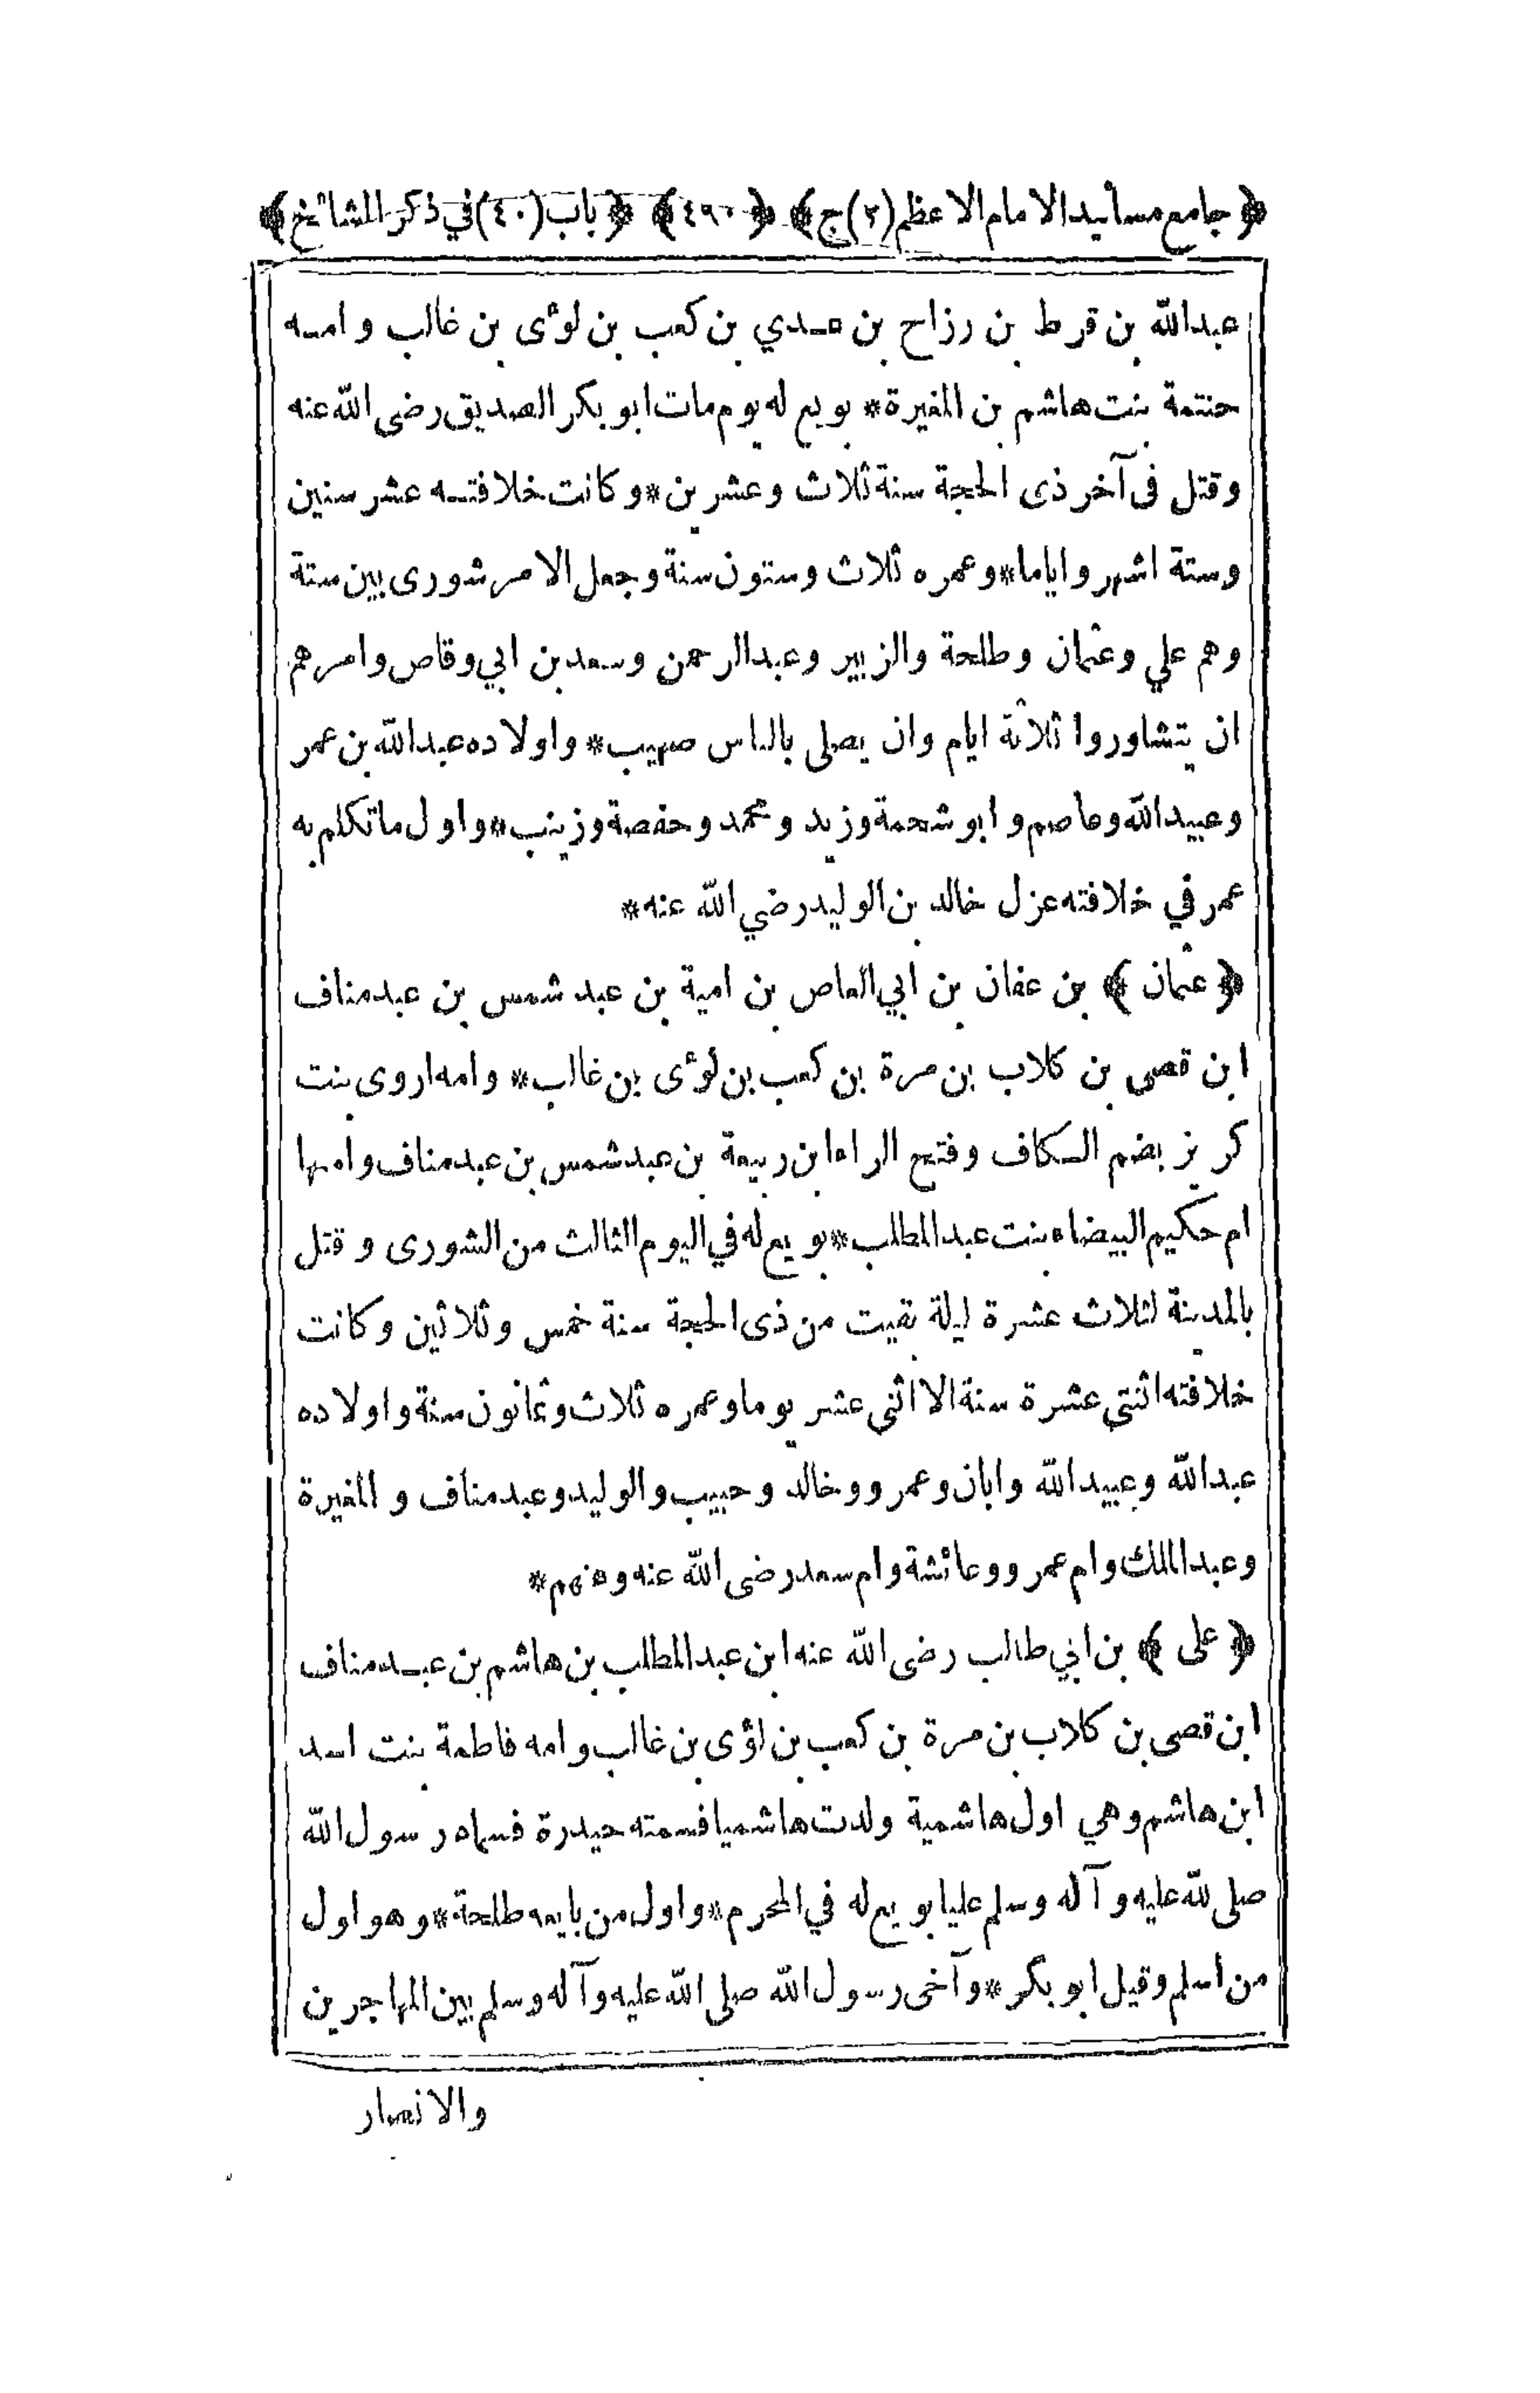 ﴿ جامع مسانيد الامام الاعظم (٢) ج ﴾ ﴿ ٤٩٠ ﴾ ﴿ باب (٤٠) في ذكر المشائخ ﴾
عبدالله بن قرط بن رزاح بن عدي بن كعب بن لوءى بن غالب و امه
حنتمة بنت هاشم بن المغيرة * بويع له يوم مات ابو بكر الصديق رضى الله عنه
وقتل فى آخر ذى الحجة سنة ثلاث وعشرين * وكانت خلافته عشر سنين
وستة اشهر واياما * وعمره ثلاث وستون سنة وجعل الامر شورى بين ستة
وهم علي وعثمان وطلحة والزبير وعبدالرحمن وسعد بن ابي وقاص وامرهم
ان يتشاوروا ثلاثة ايام وان يصلى بالناس صهيب * واولاده عبدالله بن عمر
وعبيدالله وعاصم و ابو شحمة وزيد و محمد وحفصة وزينب * واول ما تكلم به
عمر في خلافته عزل خالد بن الوليد رضي الله عنه *
﴿ عثمان ﴾ بن عفان بن ابي العاص بن امية بن عبد شمس بن عبد مناف
ابن قصى بن كلاب بن مرة بن كعب بن لوءى بن غالب * وامه اروى بنت
كريز بضم الكاف وفتح الراء ابن ربيعة بن عبد شمس بن عبد مناف وامها
ام حكيم البيضاء بنت عبد المطلب * بويع له في اليوم الثالث من الشورى و قتل
بالمدينة لثلاث عشرة ليلة بقيت من ذى الحجة سنة خمس وثلاثين وكانت
خلافته اثنتى عشرة سنة الا اثنى عشر يوما وعمره ثلاث وثمانون سنة واولاده
عبدالله وعبيدالله وابان وعمر ووخالد وحبيب والوليد وعبد مناف و المغيرة
وعبدالملك وام عمر ووعائشة وام سعد رضى الله عنه وعنهم *
﴿ على ﴾ بن ابي طالب رضى الله عنه ابن عبد المطلب بن هاشم بن عبد مناف
ابن قصى بن كلاب بن مرة بن كعب بن لؤى بن غالب وامه فاطمة بنت اسد
ابن هاشم وهي اول هاشمية ولدت هاشميا فسمته حيدرة فسماه رسول الله
صلى لله عليه و آله وسلم عليا بويع له في المحرم * واول من بايعه طلحة * وهو اول
من اسلم وقيل ابو بكر * وآخى رسول الله صلى الله عليه وآله وسلم بين المهاجرين
والانصار